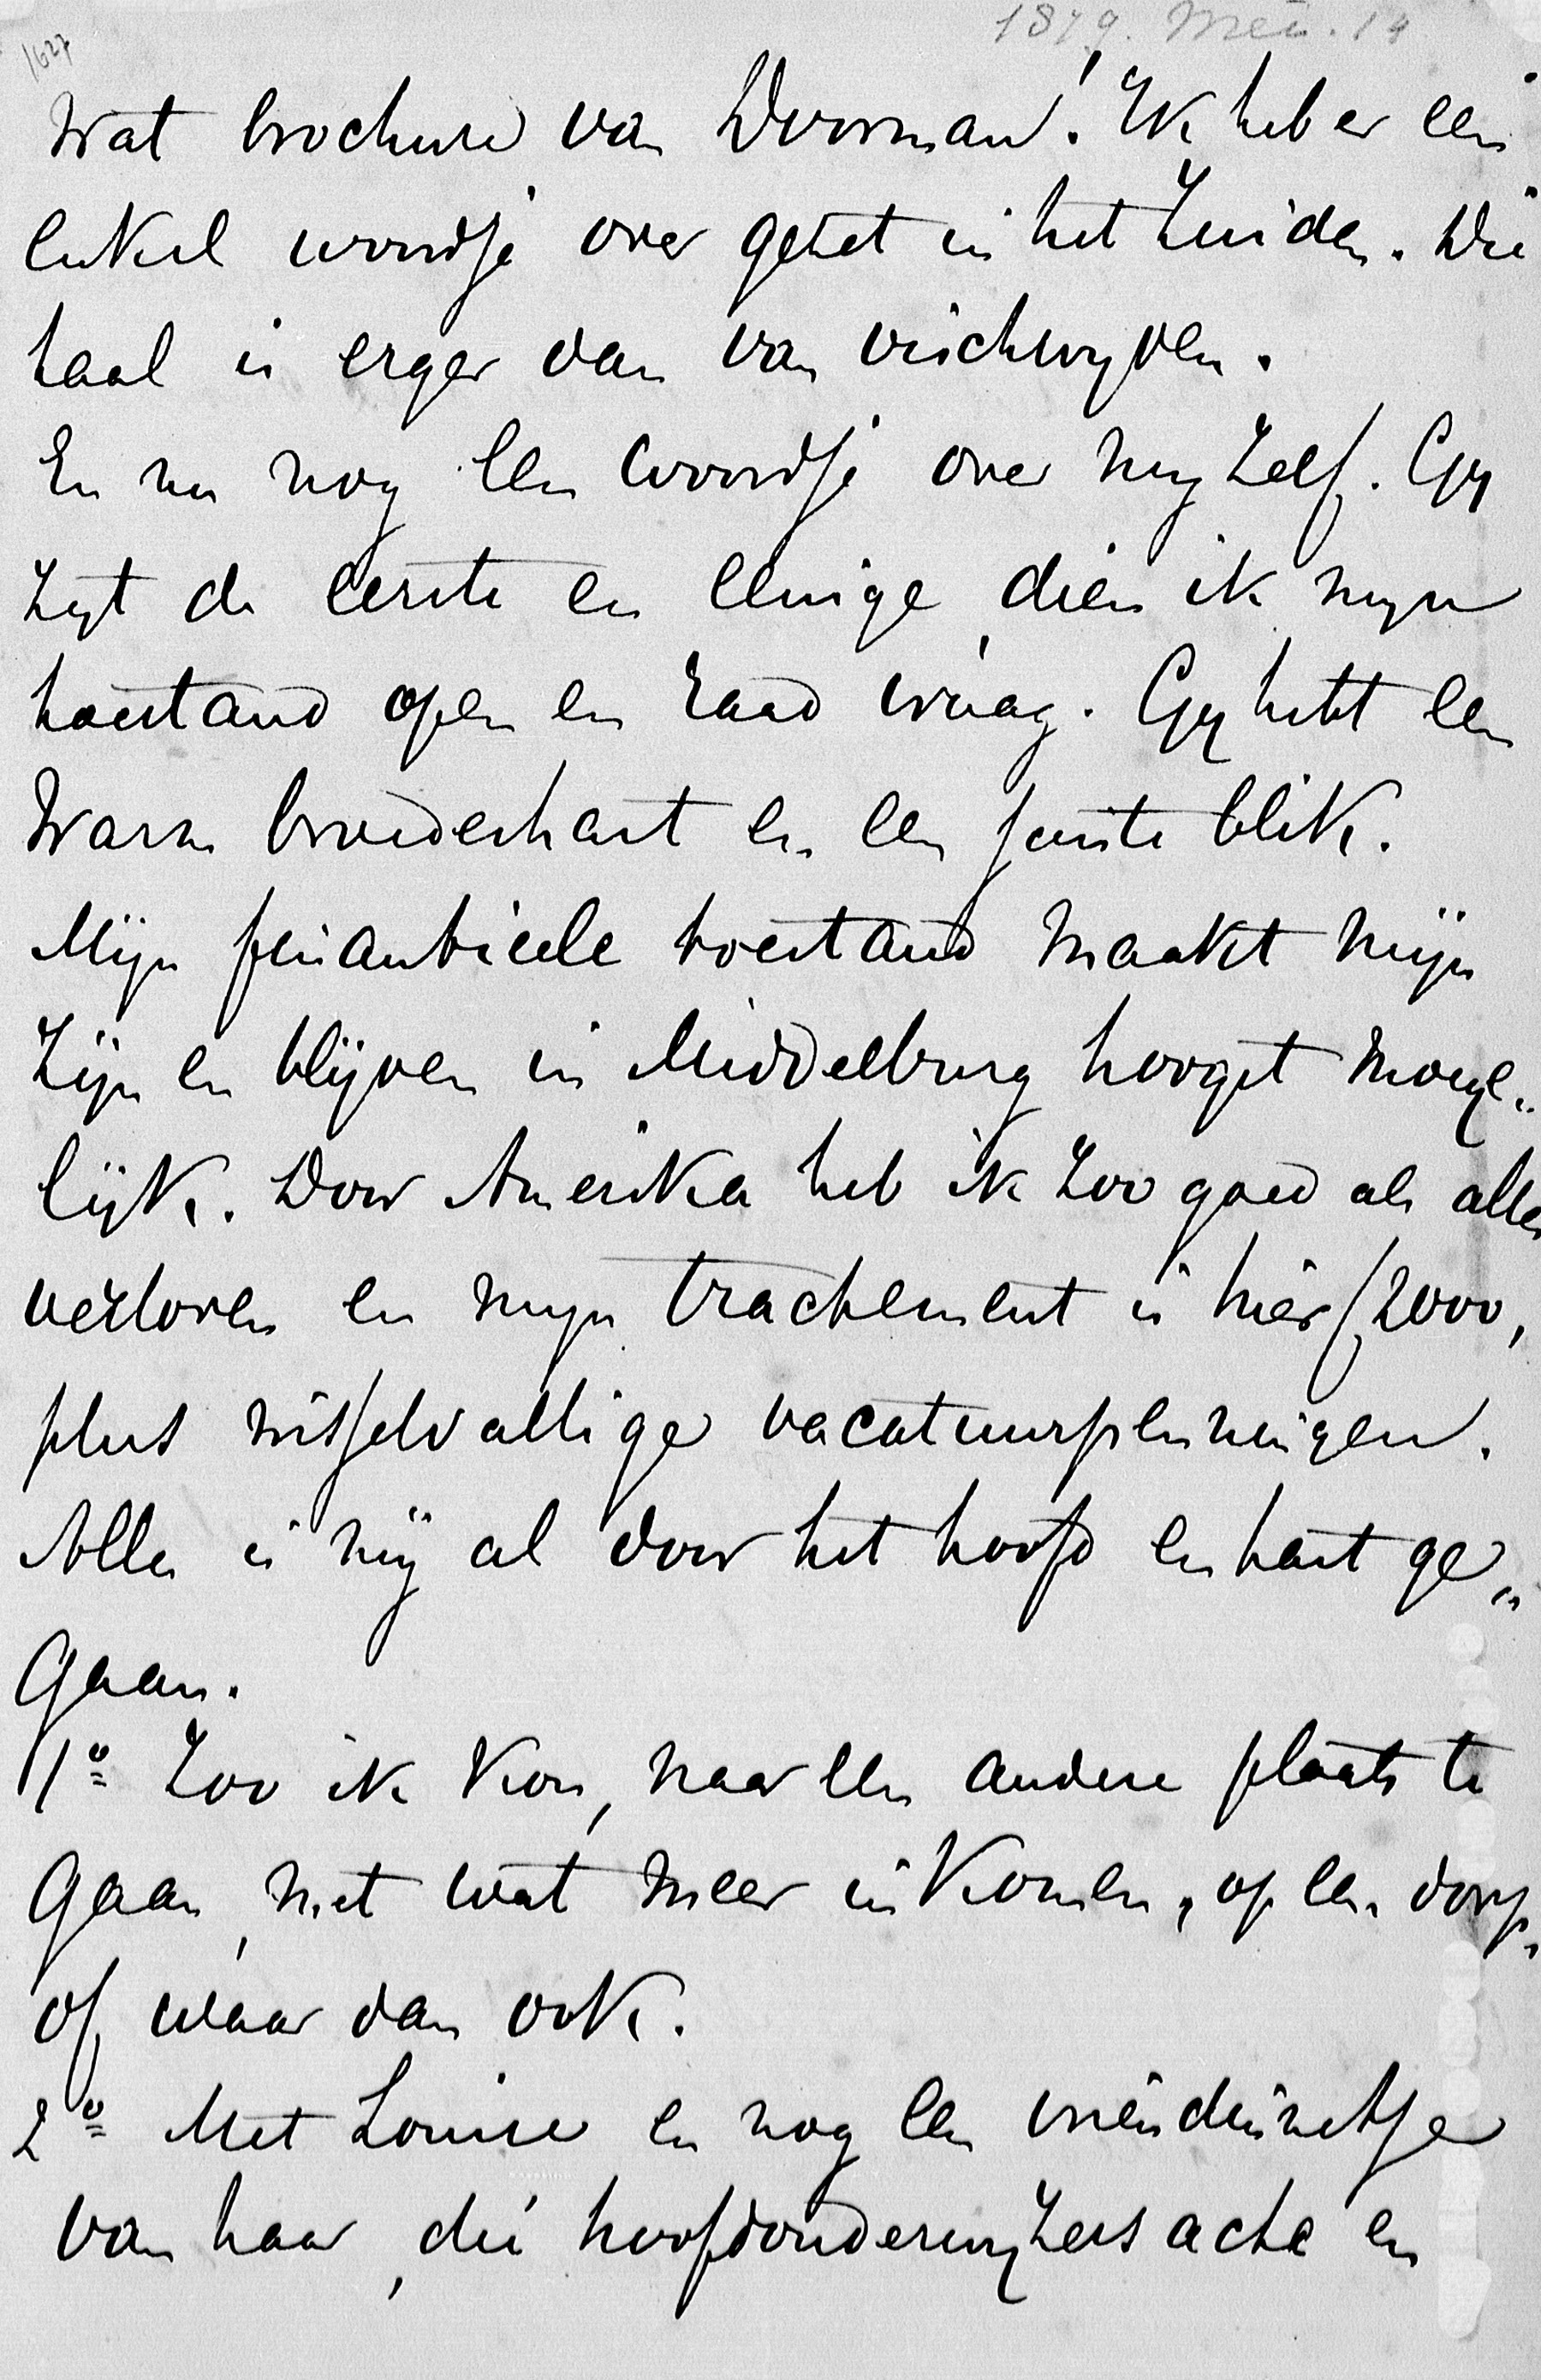 1627
1879. Mei. 14
Wat brochure van Doorman! Ik heb er een
enkel woordje over gezet in het Zuiden. Die
taal is erger dan van vischwyven.
En nu nog een woordje over my zelf. Gy
zyt de eerste en eenige, dien ik myn
toestand open en raad vraag. Gy hebt een
warm broederhart en een juiste blik.
Mijn finantieele toestand maakt mijn
zijn en blijven in Middelburg hoogst moeye„
lijk. Door Amerika heb ik zoo goed als alles
verloren en myn tractement is hier f 2000,
plus wisselvallige vacatuurpenningen.
Alles is mij al door het hoofd en hart ge„
gaan.
1º Zoo ik kon, naar een andere plaats te
gaan, met wat meer inkomen, op een dorp,
of waar dan ook.
2º Met Louise en nog een vriendinnetje
van haar, die hoofdonderwyzersacte en